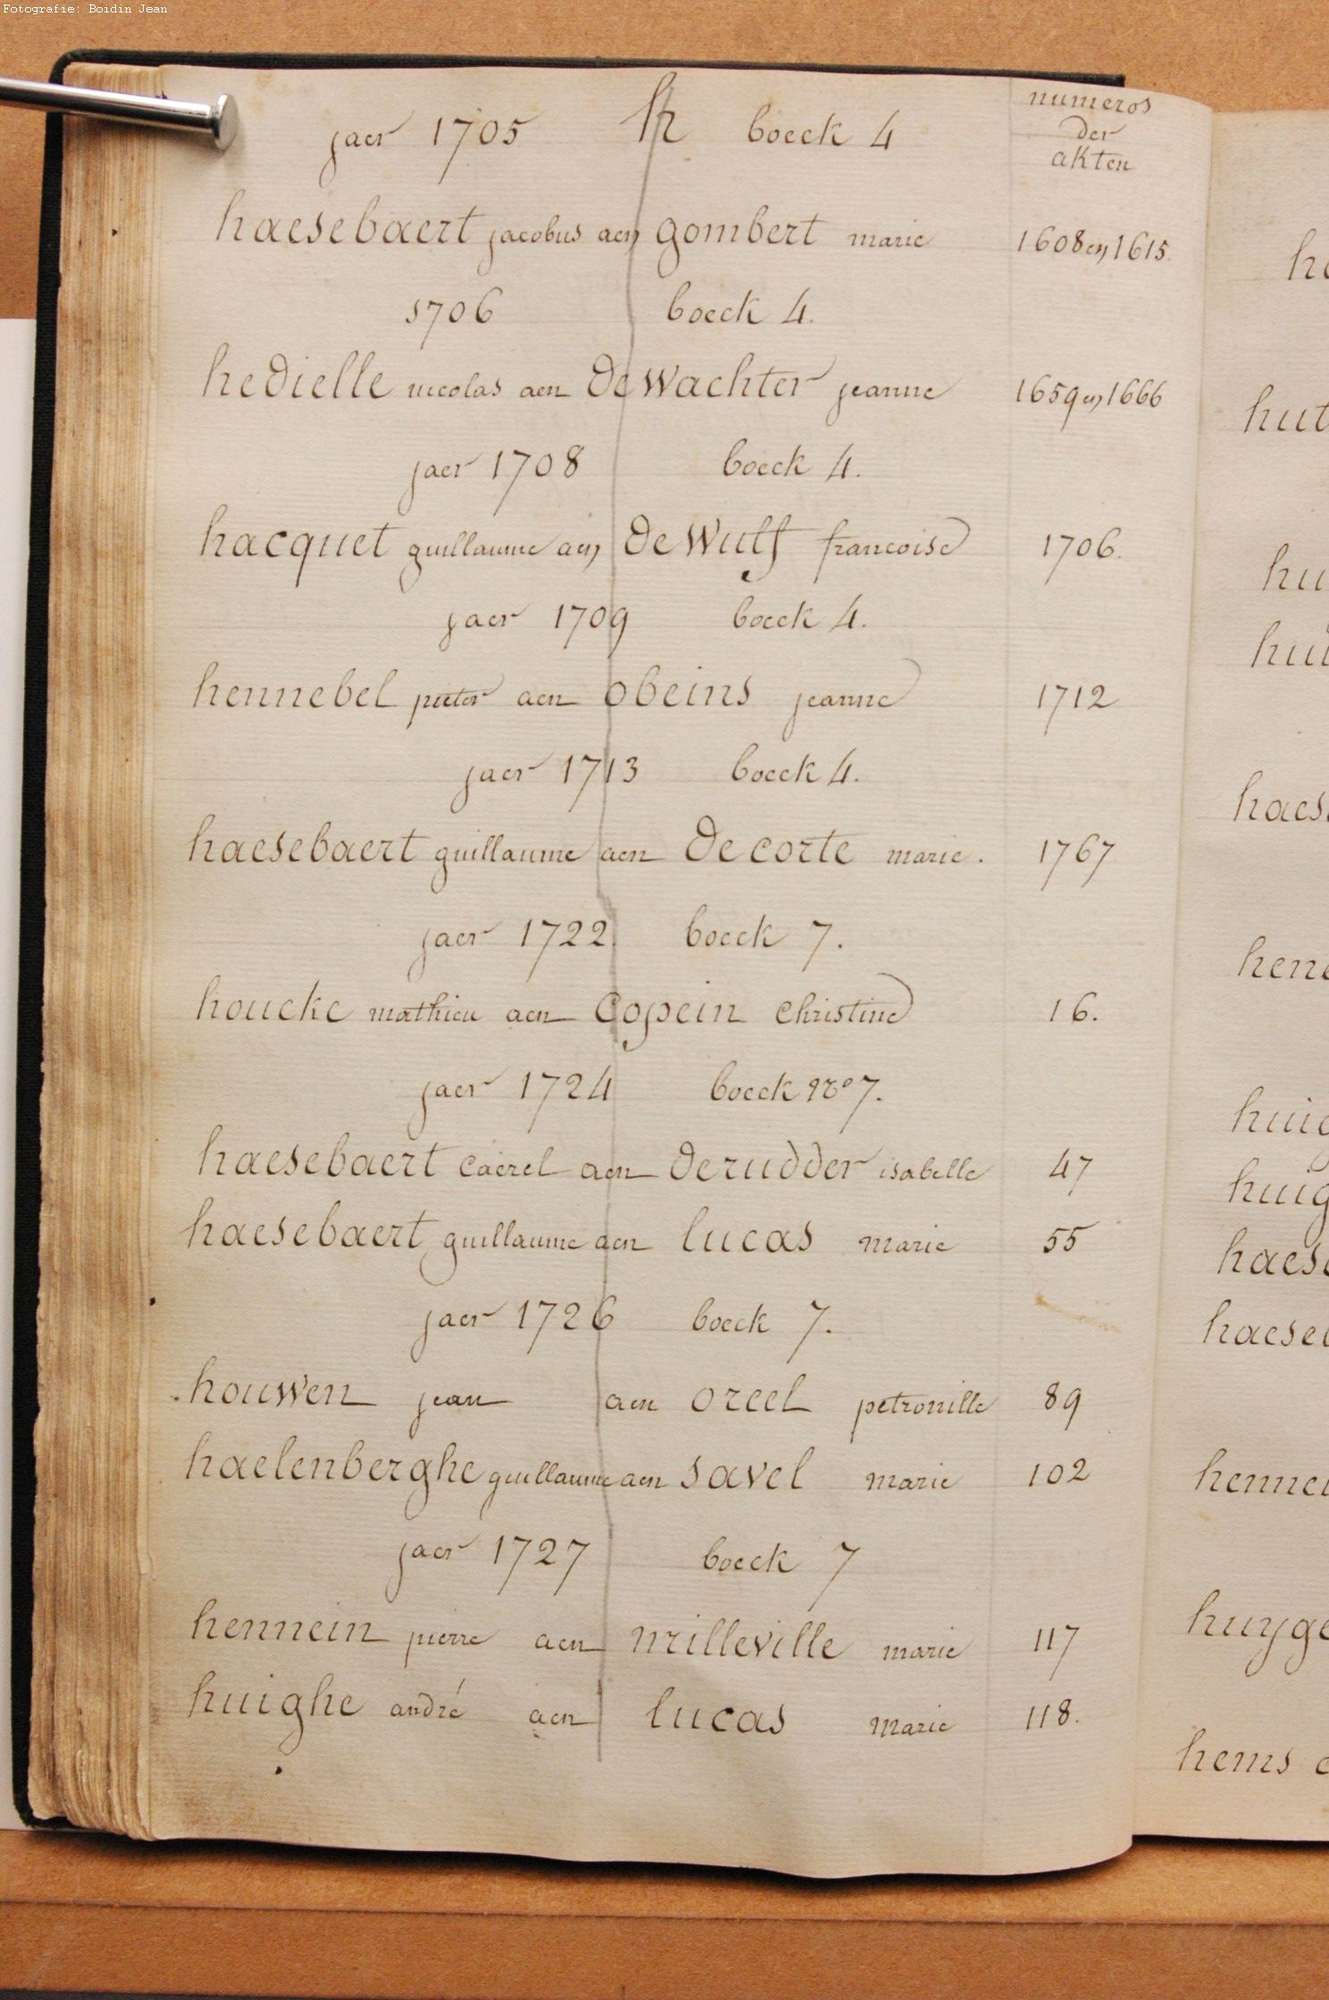 Fotografie: Boidin Jean
jaer 1705 h boeck 4
numeros
der
akten
haesebaert jacobus aen gombert marie 1608 en 1615.
1706 boeck 4.
hedielle nicolas aen De wachter jeanne 1659 en 1666
jaer 1708 boeck 4.
hacquet guillaume aen De wulf francoise 1706.
jaer 1709 boeck 4.
hennebel pieter aen obeins jeanne 1712
jaer 1713 boeck 4.
haesebaert guillaume aen De corte marie. 1767
jaer 1722 boeck 7.
houcke mathieu aen Copein Christine 16.
jaer 1724 boeck No 7.
haesebaert Caerel aen De rudder isabelle 47
haesebaert guillaume aen lucas marie 55
jaer 1726 boeck 7.
houwen jean aen orcel petronille 89
haelenberghe guillaume aen savel marie 102
jaer 1727 boeck 7
hennein pierre aen milleville marie 117
huighe andré aen lucas marie 118.